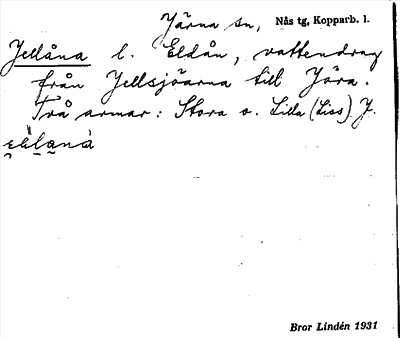 Järna sn, Nås tg, Kopparb. l.
Jellåna l. Eldån, vattendrag
från Jellsjöarna till Jöra.
Två armar: Stora o. Lilla (Liss) J.
Bror Lindén 1931